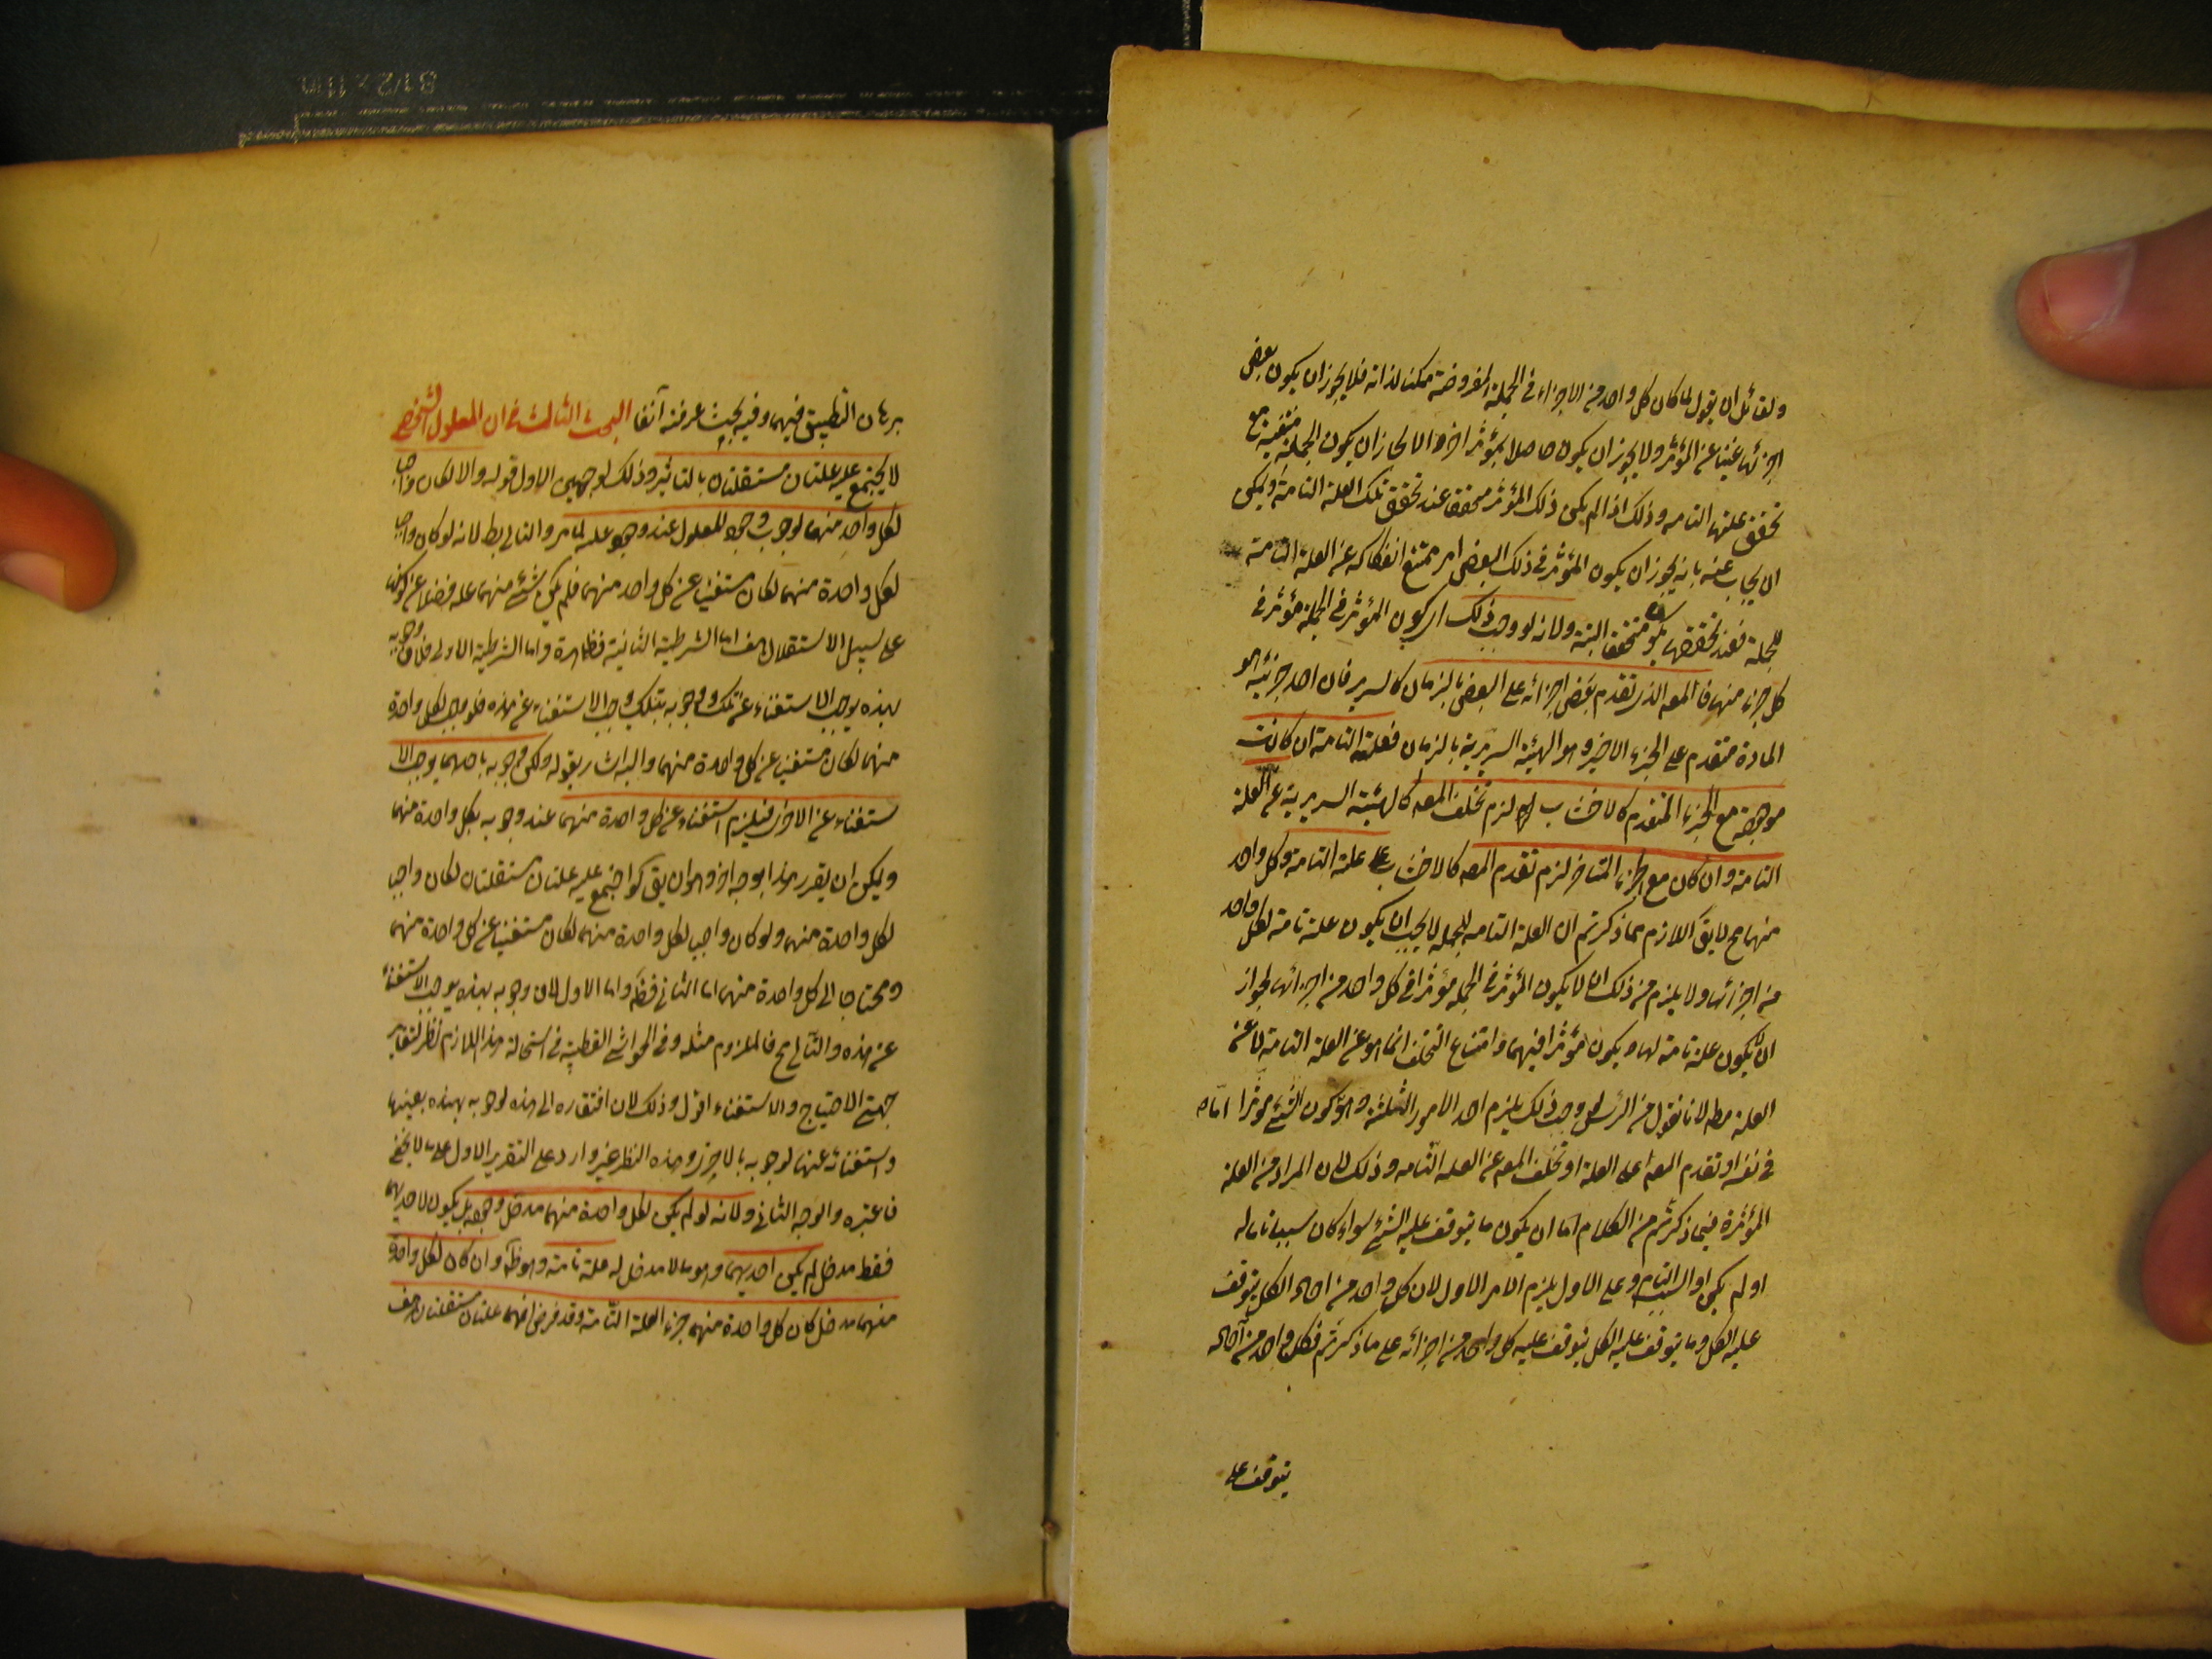 ولقائل ان يقول لما كان كل واحد من الاجزاء فى الجملة المفروضة ممكنا لذاته فلا يجوز ان يكون بعض
اجزائها غنيا عن المؤثر ولا يجوز ان يكون حاصلا بمؤثر اخر والا لجاز ان يكون الجملة منتفية مع
تحقق علتها التامه وذلك اذا لم يكن ذلك المؤثر متحققا عند تحقق تلك العلة التامة ويمكن
ان يجاب عنه بانه يجوز ان يكون المؤثر فى ذلك البعض امر ممتنع انفكاكه عن العلة التامة
للجملة فعند تحققها يكون متحققا البتة ولانه لو وجب ذلك اى كون المؤثر فى الجملة مؤثر فى
كل جزء منها فالمعه الذى تقدم بعض اجزائه على البعض بالزمان كالسرير فان احد جزئيه هو
المادة متقدم على الجزء الاخير وهو الهيئة السريرية بالزمان فعلته التامة ان كانت
موجودة مع الجزء المتقدم كالاخشاب لزم تخلف المعه كالهيئة السريرية عن العلة
التامة وان كان مع الجزء المتاخر لزم تقدم المعه كالاخشاب على علته التامة وكل واحد
منها مح لا يق اللازم مما ذكرتم ان العلة التامه للجمله لا يجب ان يكون علة تامة لكل واحد
من اجزائها ولا يلزم من ذلك ان لا يكون المؤثر فى الجملة مؤثرا فى كل واحد من اجزائها لجواز
ان لا يكون علة تامة لها ويكون مؤثرا فيهما وامتناع التخلف انما هو عن العلة التامة لا عن
العلة مطه لانا نقول من الرأس لو وجب ذلك يلزم احد الامور الثلثة وهو كون الشئ مؤثرا اما
فى نفسه او تقدم المعه على العلة او تخلف المعه عن العله التامه وذلك لان المراد من العلة
المؤثرة فيما ذكرتم من الكلام اما ان يكون ما يتوقف عليه الشئ سواء كان سببا تاما له
او لم يكن او السبب التام وعلى الاول يلزم الامر الاول لان كل واحد من احاد الكل يتوقف
عليه الكل وما يتوقف عليه الكل يتوقف عليه كل واحد من اجزائه على ما ذكرتم فكل واحد من آحاده
يتوقف على
برهان التطبيق فيهما وفيه بحيث عرفته آنفا البحث الثالث فى ان المعلول الشخصى
لا يجتمع عليه علتان مستقلتان بالتاثير وذلك لوجهين الاول قوله والا لكان واجبا
لكل واحد منهما لوجوب وجود المعلول عند وجود علته لما مر والتالى بط لانه لو كان واجبا
لكل واحدة منهما لكان مستغنيا عن كل واحد منهما فلم يكن شئ منهما علة فضلا عن كونها
على سبيل الاستقلال هف اما الشرطية الثانية فظاهرة واما الشرطية الاولى فلان وجوبه
بهذه يوجب الاستغناء عن تلك ووجوبه بتلك يوجب الاستغناء عن هذه فلو وجب بكل واحدة
منهما لكان مستغنيا عن كل واحدة منهما واليه اشار بقوله ولكن وجوبه باحدهما يوجب الا
ستغناء عن الاخرى فيلزم استغناءه عن كل واحدة منهما عند وجوبه بكل واحدة منهما
ويمكن ان يقرر هذا بوجه اخر وهو ان يق لو اجتمع عليه علتان مستقلتان لكان واجبا
لكل واحدة منهما ولو كان واجبا لكل واحدة منهما لكان مستغنيا عن كل واحدة منهما
ومحتاجا الى كل واحدة منهما اما الثانى فظه واما الاول فلان وجوبه بهذه يوجب الاستغناء
عن هذه والتالى مح فالملزوم مثله وفى الحواشى القطبية فى استحالة هذا اللازم نظر لتغاير
جهتى الاحتياج والاستغناء اقول وذلك لان افتقاره الى هذه لوجوبه بهذه بعينها
واستغنائه عنها لوجوبه بالاخرى وهذه النظر غير وارد على التقرير الاول على ما لا يخفى
فاعتبره والوجه الثانى ولانه لو لم يكن لكل واحدة منهما مدخل وجوده بل يكون لاحديهما
فقط مدخل لم يكن احديهما وهو ما لا مدخل له علة تامة وهو ظه وان كان لكل واحدة
منهما مدخل كان كل واحدة منهما جزء العلة التامة وقد فرض انهما علتان مستقلتان هف